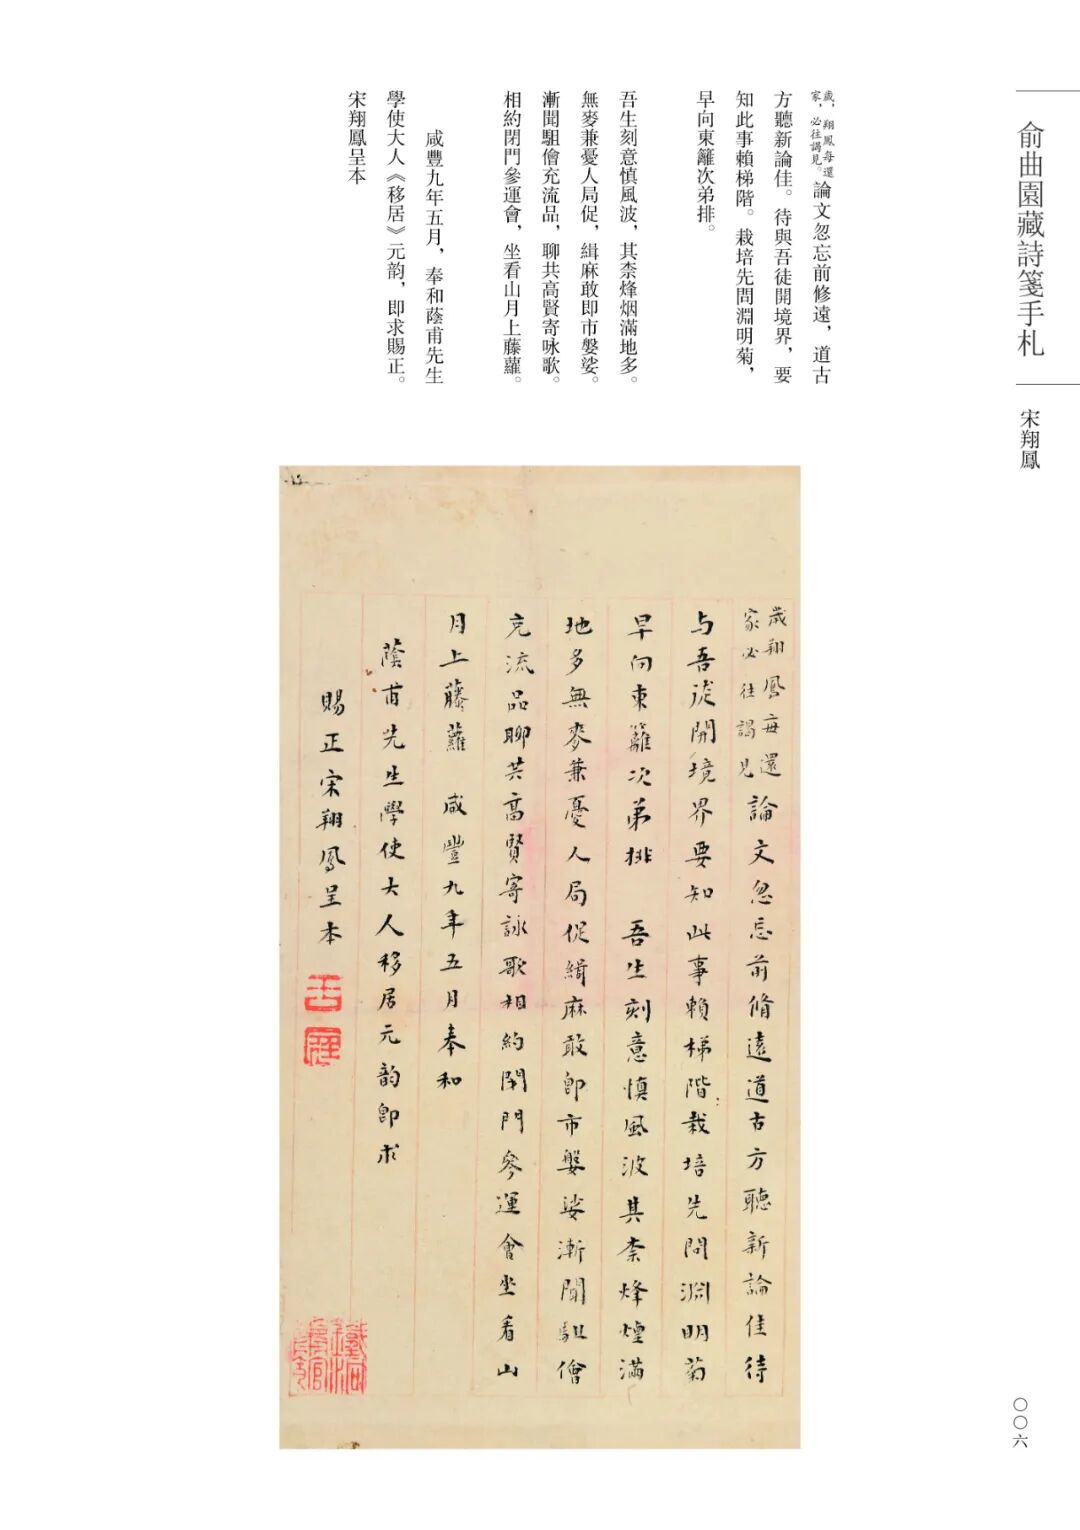 俞曲園藏詩箋手札
宋翔鳳
〇〇六
歲，翔鳳每還
家，必往謁見。
論文忽忘前修遠，道古
方聽新論佳。待與吾徒開境界，要
知此事賴梯階。栽培先問淵明菊，
早向東籬次弟排。
吾生刻意慎風波，其柰烽烟滿地多。
無麥兼憂人局促，緝麻敢即市媻娑。
漸聞駔儈充流品，聊共高賢寄咏歌。
相約閉門參運會，坐看山月上藤蘿。
咸豐九年五月，奉和蔭甫先生
學使大人《移居》元韵，即求賜正。
宋翔鳳呈本
歲翔鳳每還
家必往謁見
論文忽忘前脩遠道古方聽新論佳待
与吾徒開境界要知此事賴梯階栽培先問淵明菊
早向東籬次弟排 吾生刻意慎風波其柰烽煙滿
地多無麥兼憂人局促緝麻敢即市媻娑漸聞駔儈
充流品聊共高賢寄詠歌相約閉門參運會坐看山
月上藤蘿 咸豐九年五月奉和
蔭甫先生學使大人移居元韵即求
賜正宋翔鳳呈本